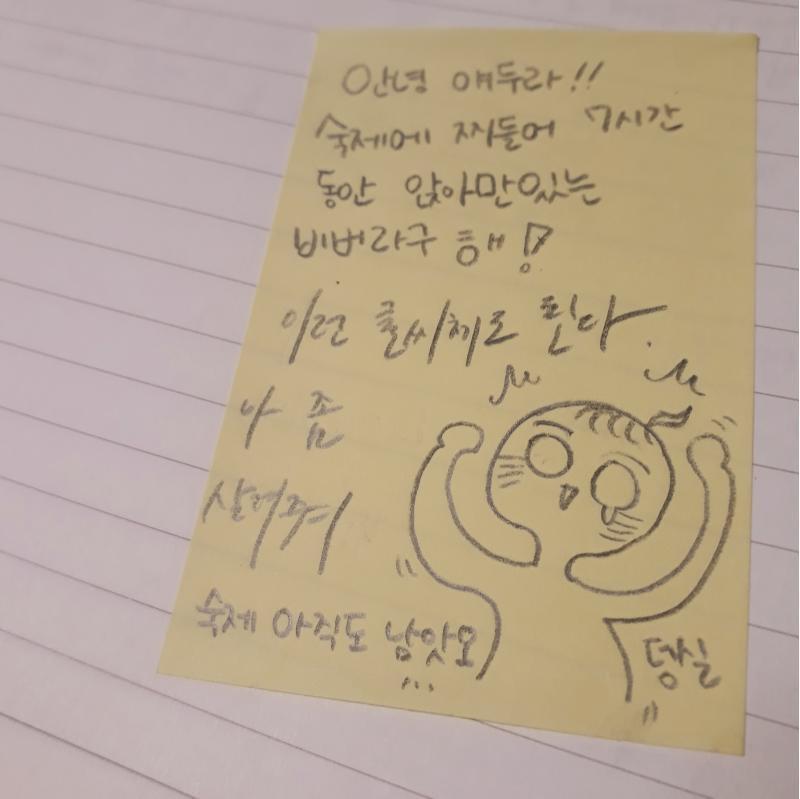 안녕 얘두라!!
숙제에 찌들어 7시간
동안 앉아만있는
비버라구 해!
이런 글씨체도 된다.
나 좀
살려줘
숙제 아직도 남앗오
...
덩실